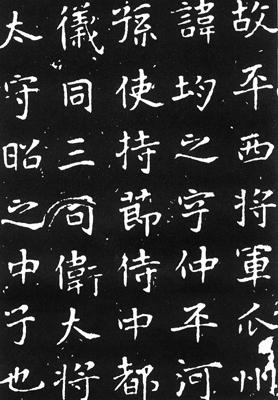 故平西將軍瓜州
諱均之字仲平河
孫使持節侍中都
儀同三司衛大將
太守昭之中子也